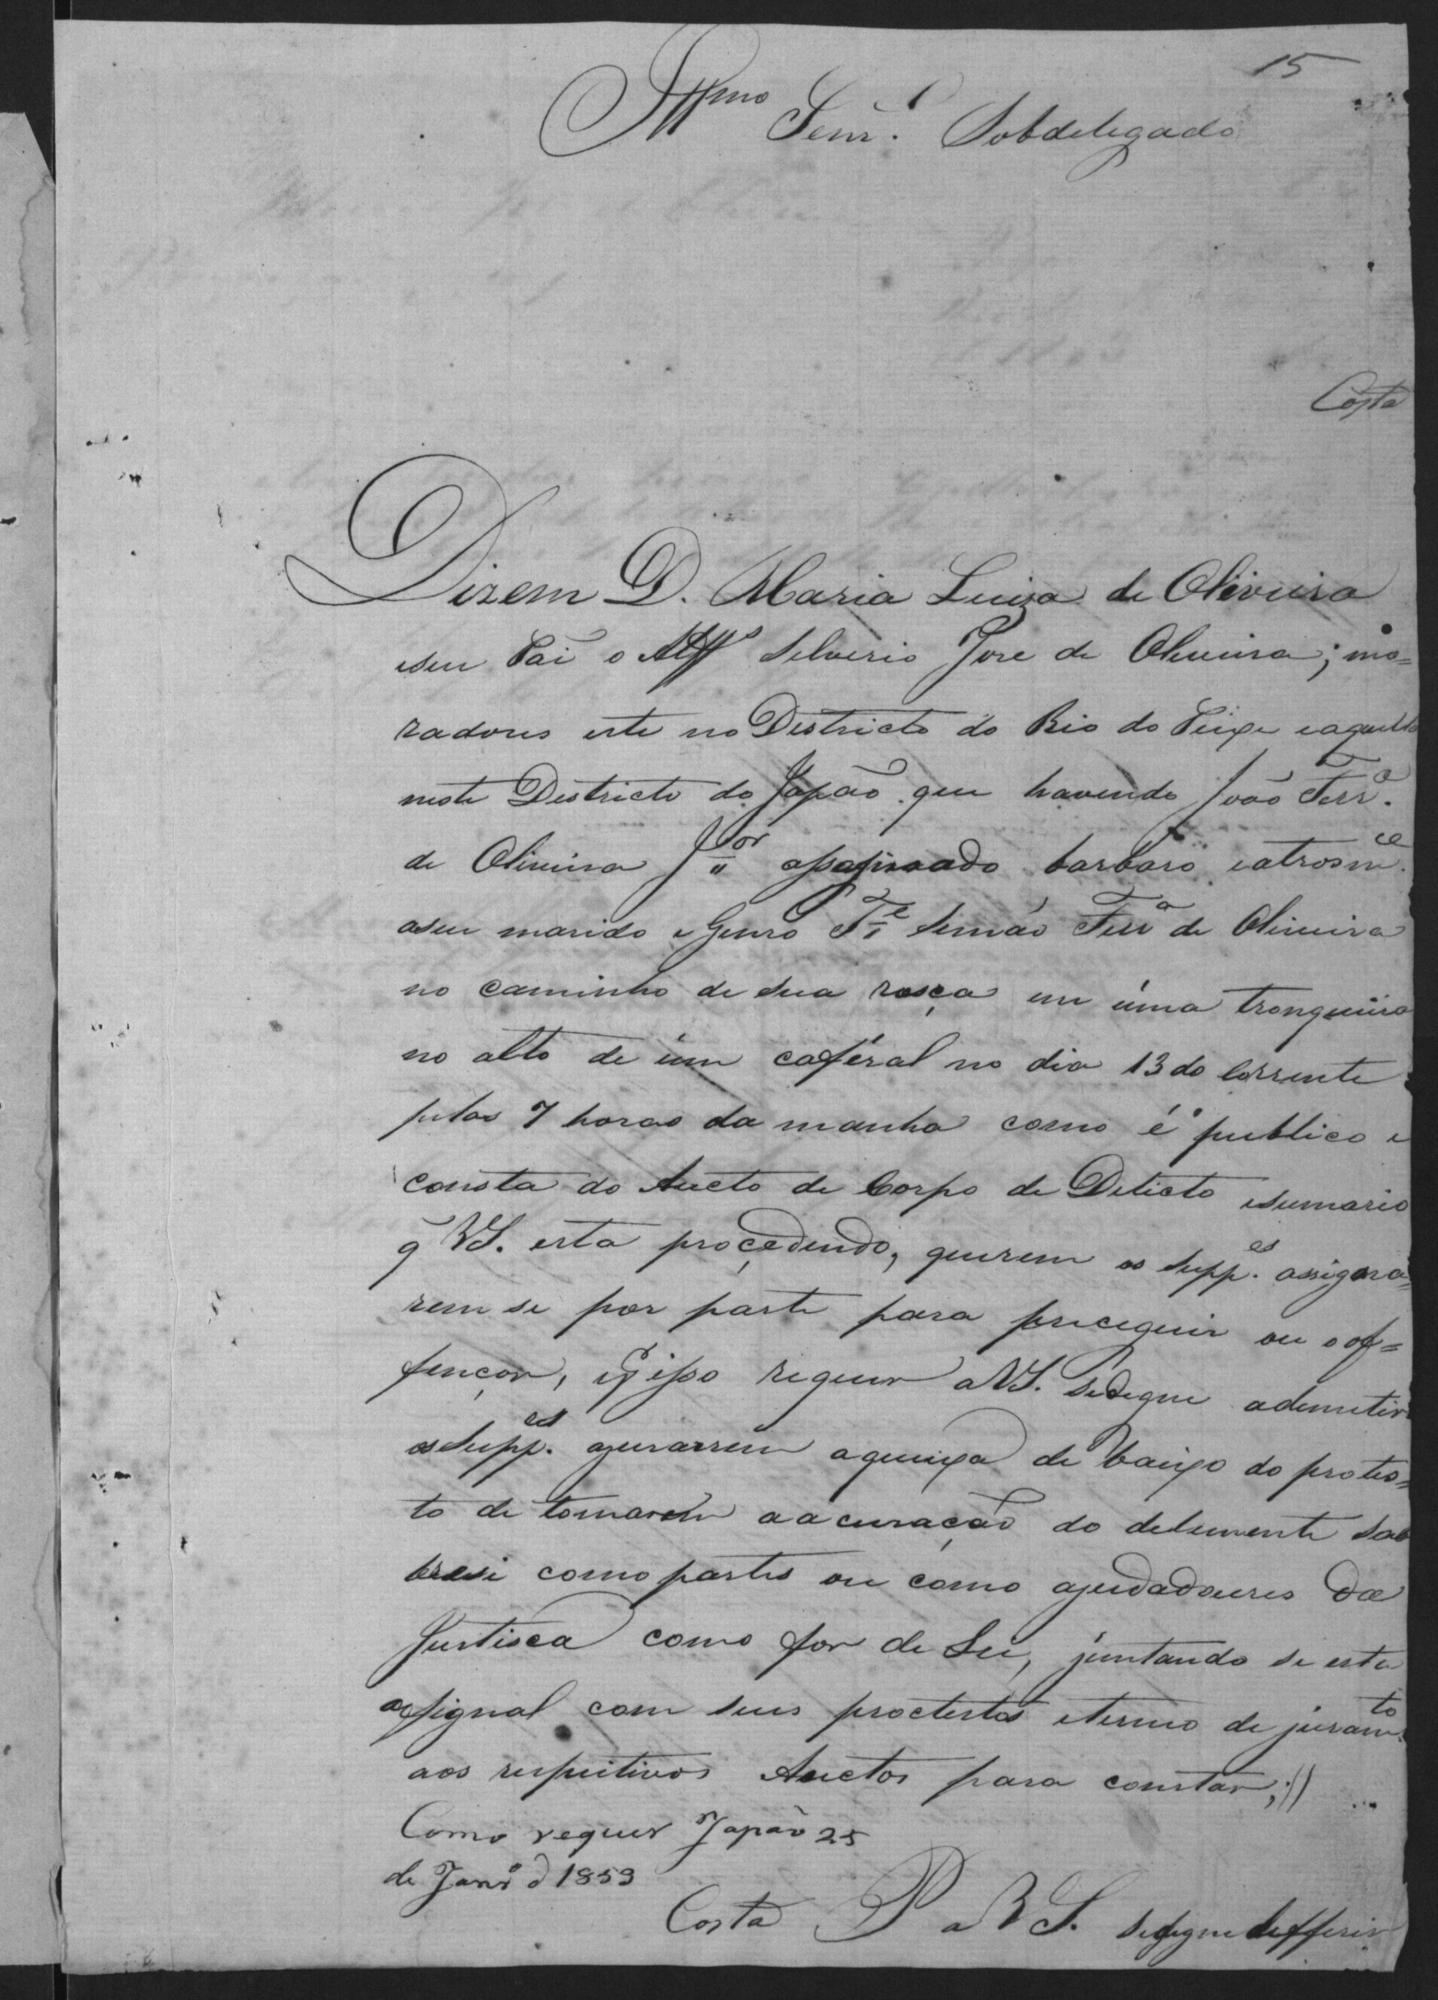 15
Illmo Senr. Sobdelegado
Costa
Dizem D. Maria Luiza de Oliveira
eseu Pai o Alfs Silverio Jose de Oliveira; mo=
radores este no Districto do Rio do Peixe eaquella
neste Districto do Japão que havendo João Ferra.
de Oliveira Jor apapinado barbaro eatrosme.ce
aseu marido e Genro Te Simão Ferra de Oliveira
no caminho de sua rosça em úma tronqueira
no alto de úm caféral no dia 13 do Corrente
pelas 7 horas da manha como é publico e
consta do Aucto de Corpo de Delicto esumario
q̃ VS. esta proçedendo, querem os Suppes. assigna=
rem se por parte para precequir ou o of=
fençor, e pr isso requer aVS. sedigne ademetir
os Suppes. ajurarem aqueixa de baixo do protes=
to de tomarem aacuração do delinquente sob
resi como partes ou como ajudadoures da
Justisca como for de Lei, juntando se esta
assignal com seus proctestos etermo de juramto.
aos respeitivos Auctos para constar, //
Como requer Japão 25
de Janro d 1853
Costa
P a V S. sedigne defferir